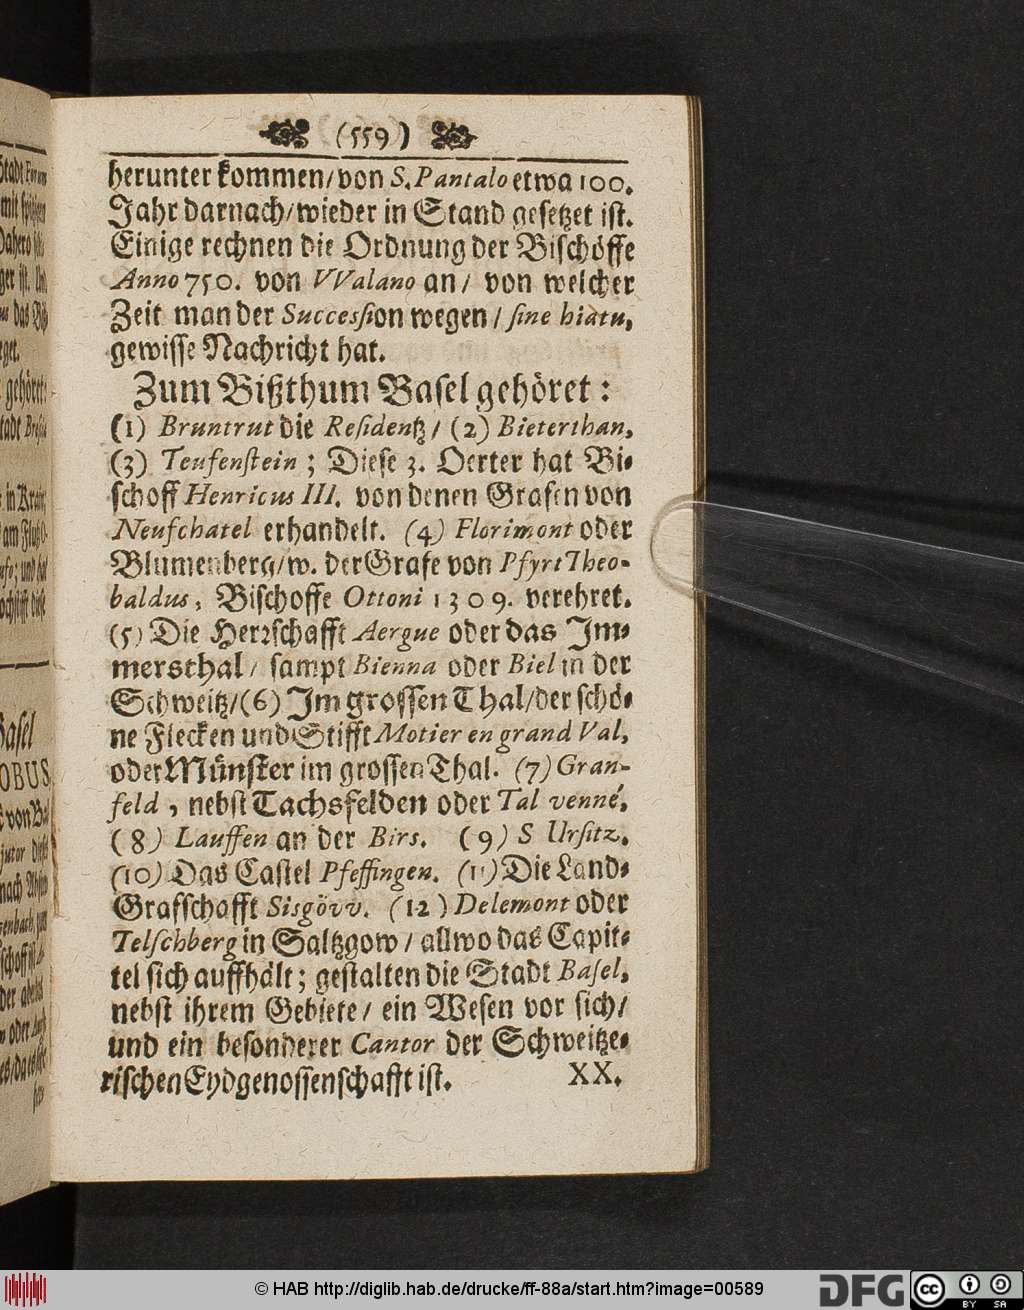 (559)
herunter kommen/von S. Pantalo etwa 100.
Jahr darnach/wieder in Stand gesetzet ist.
Einige rechnen die Ordnung der Bischöffe
Anno 750. von VValano an/ von welcher
Zeit man der Succession wegen/ sine hiatu,
gewisse Nachricht hat.
Zum Bißthum Basel gehöret:
(1) Bruntrut die Residentz/ (2) Bieterthan,
(3) Teufenstein; Diese 3. Oerter hat Bi-
schoff Henricus III. von denen Grafen von
Neufchatel erhandelt. (4) Florimont oder
Blumenberg/w. der Grafe von Pfyrt Theo-
baldus, Bischoffe Ottoni 1309. verehret.
(5) Die Herrschafft Aergue oder das Im-
mersthal/ sampt Bienna oder Biel in der
Schweitz/(6) Im grossen Thal/der schö-
ne Flecken und Stifft Motier en grand Val,
oder Münster im grossen Thal. (7) Gran-
feld, nebst Tachsfelden oder Tal venné.
(8) Lauffen an der Birs. (9) S Ursitz.
(10) Das Castel Pfeffingen. (11) Die Land-
Grafschafft Sisgövv. (12) Delemont oder
Telschberg in Saltzgow/ allwo das Capit-
tel sich auffhält; gestalten die Stadt Basel,
nebst ihrem Gebiete/ ein Wesen vor sich/
und ein besonderer Cantor der Schweitze-
rischen Eydgenossenschafft ist.
XX.
© HAB http://diglib.hab.de/drucke/ff-88a/start.htm?image=00589
DFG
cc BY SA